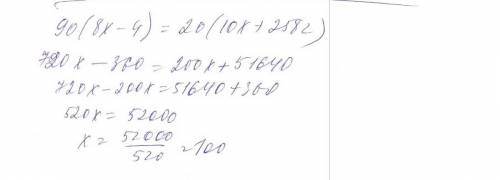 90(8x-4) = 20(10x+2582)
720x - 360 = 200x + 51640
720x - 200x = 51640 + 360
520x = 52000
x = 52000/520 = 100